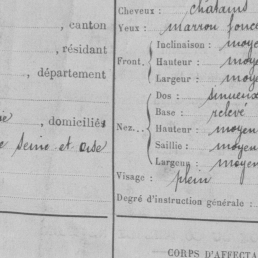 , canton
, résidant
, département
, domiciliés
Seine et Oise
Cheveux : châtains
Yeux : marron foncé
Front. Inclinaison : moye
Hauteur : moye
Largeur : moye
Nez... Dos : sinueux
Base : relevé
Hauteur : moyen
Saillie : moyen
Largeur : moyen
Visage : plein
Degré d'instruction générale :
CORPS D'AFFECTA